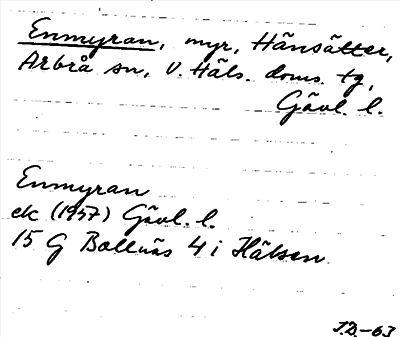 Enmyran, myr, Hänsätter,
Arbrå sn, V. Häls. doms. tg,
Gävl. l.
Enmyran
ek (1957) Gävl. l.
15 G Bollnäs 4 i Hälsen
J.D.-63